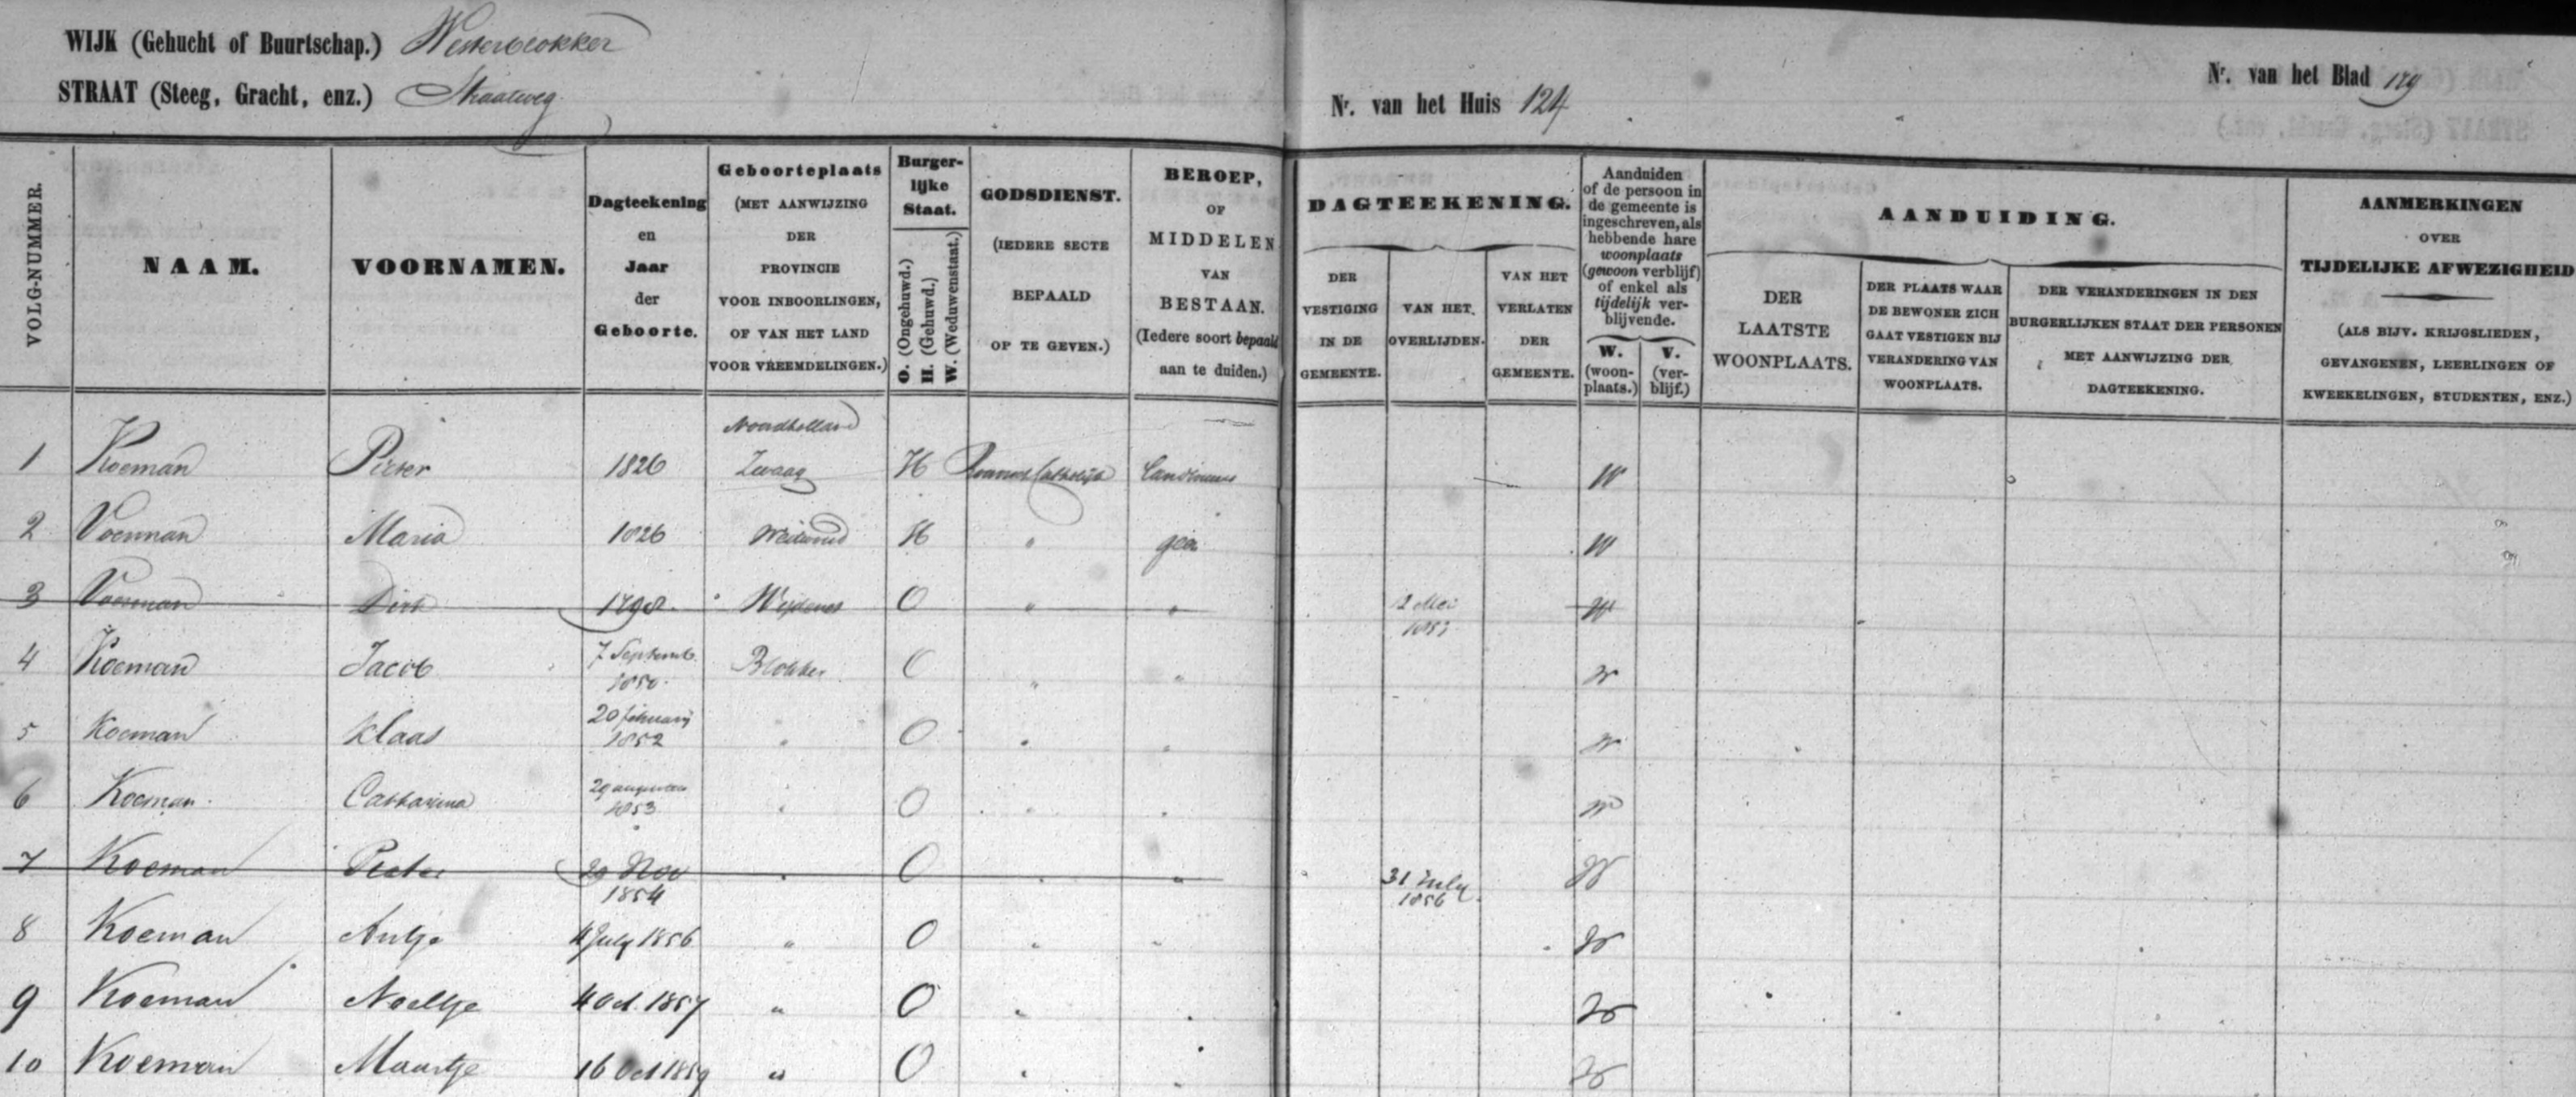 WIJK (Gehucht of Buurtschap.) Westerblokker
STRAAT (Steeg, Gracht, enz.) Straatweg
Nr. van het Huis 124
Nr. van het Blad 179
VOLG-NUMMER.
NAAM.
VOORNAMEN.
Dagteekening
en
Jaar
der
Geboorte.
Geboorteplaats
(MET AANWIJZING
DER
PROVINCIE
VOOR INBOORLINGEN,
OF VAN HET LAND
VOOR VREEMDELINGEN.)
Burger-
lijke
Staat.
O. (Ongehuwd.)
H. (Gehuwd.)
W. (Weduwenstaat.)
GODSDIENST.
(IEDERE SECTE
BEPAALD
OP TE GEVEN.)
BEROEP,
OF
MIDDELEN
VAN
BESTAAN.
(Iedere soort bepaald
aan te duiden.)
DAGTEEKENING.
DER
VESTIGING
IN DE
GEMEENTE.
VAN HET
OVERLIJDEN.
VAN HET
VERLATEN
DER
GEMEENTE.
Aanduiden
of de persoon in
de gemeente is
ingeschreven, als
hebbende hare
woonplaats
(gewoon verblijf)
of enkel als
tijdelijk ver-
blijvende.
W.
(woon-
plaats.)
V.
(ver-
blijf.)
AANDUIDING.
DER
LAATSTE
WOONPLAATS.
DER PLAATS WAAR
DE BEWONER ZICH
GAAT VESTIGEN BIJ
VERANDERING VAN
WOONPLAATS.
DER VERANDERINGEN IN DEN
BURGERLIJKEN STAAT DER PERSONEN
MET AANWIJZING DER
DAGTEEKENING.
AANMERKINGEN
OVER
TIJDELIJKE AFWEZIGHEID
(ALS BIJV. KRIJGSLIEDEN,
GEVANGENEN, LEERLINGEN OF
KWEEKELINGEN, STUDENTEN, ENZ.)
Noordholland
1 Koeman Pieter 1826 Zwaag H Roomsch Catholijk Landbouwer W
2 Voerman Maria 1826 H " geen W
3 Voerman Dirk 1798 Wijdenes O " " 12 Mei W
4 Koeman Jacob 7 Septemb. 1850 Blokker O " " W
5 Koeman Klaas 20 februarij 1852 " O " " W
6 Koeman Catharina 29 augustus 1853 " O " " W
7 Koeman Pieter 29 Nov 1854 " O " " 31 July 1856 W
8 Koeman Antje 4 July 1856 " O " " W
9 Koeman Neeltje 4 Oct. 1857 " O " " W
10 Koeman Maartje 16 Oct 1859 " O " " W